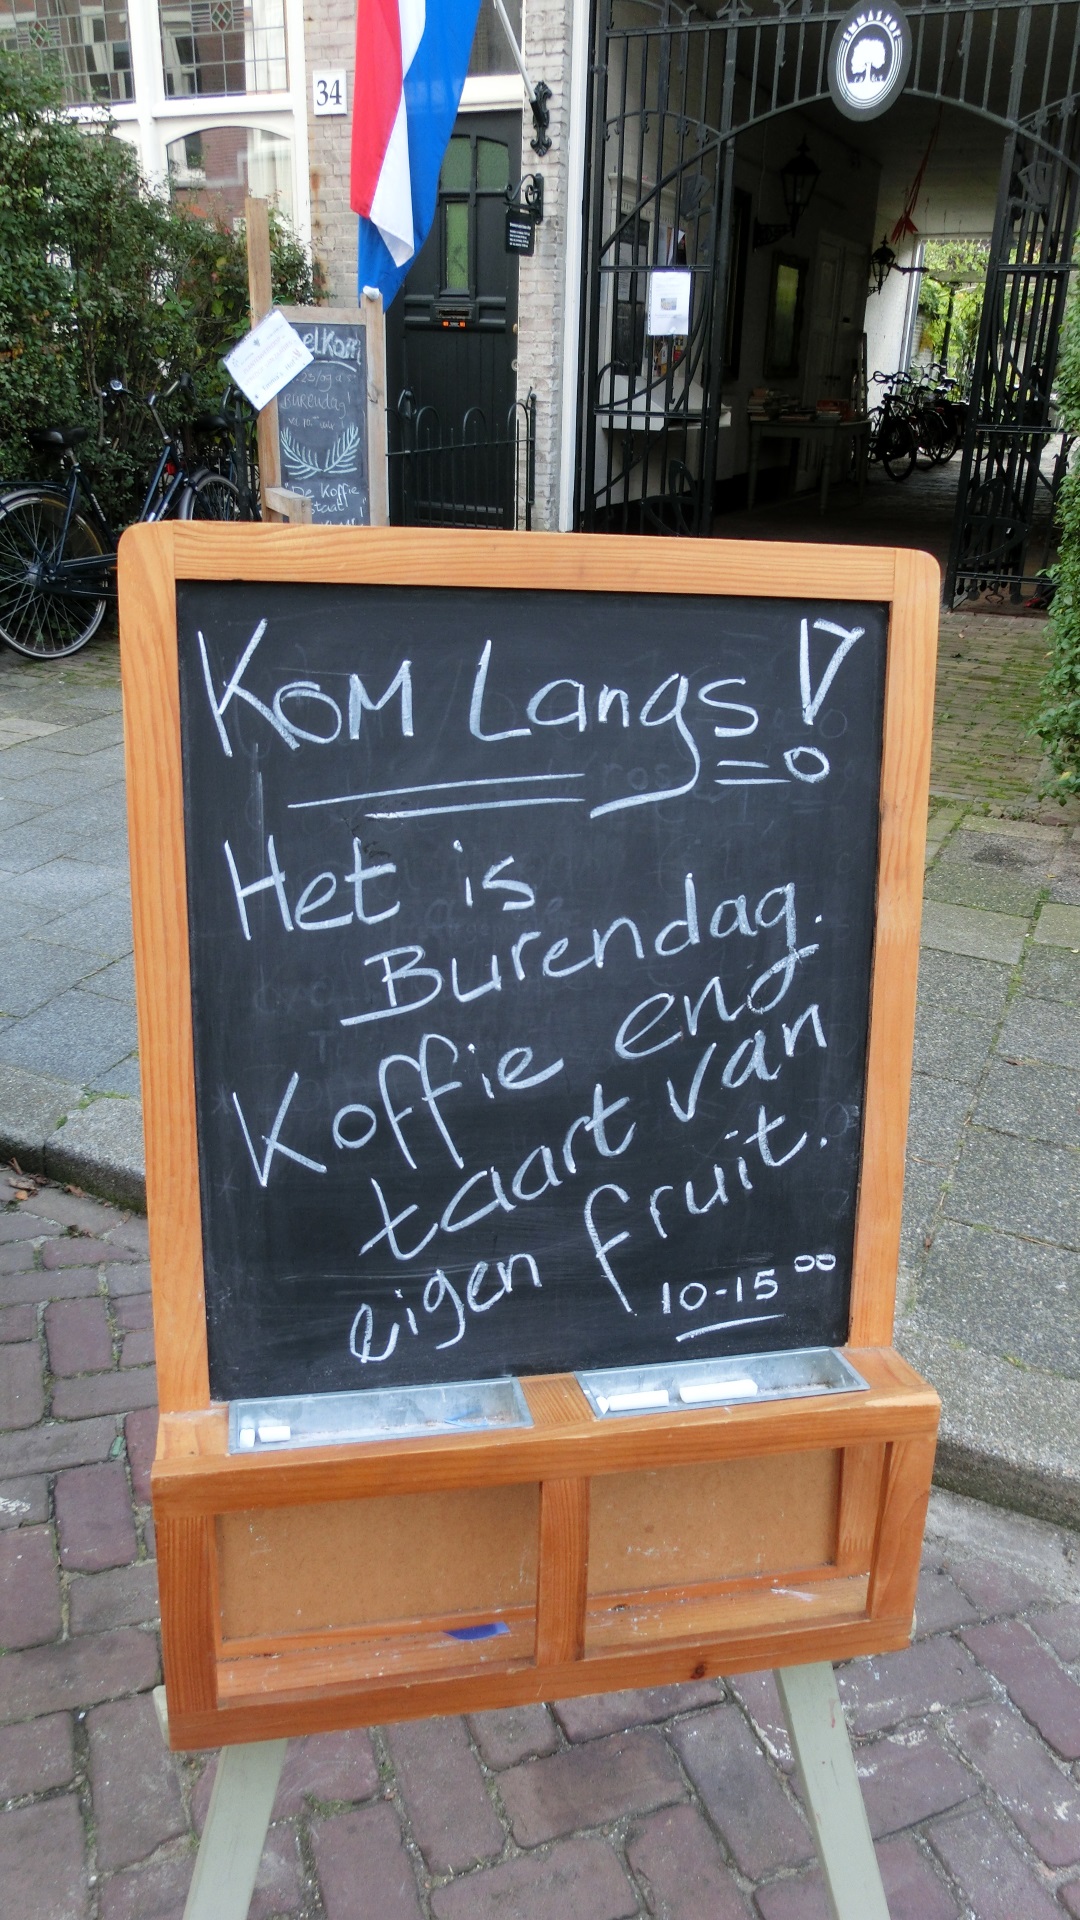 EMMASHOF
34
elkom
23/09
BURENdag!
"De Koffie
staat
Kom Langs!
Het is
Burendag.
Koffie en
taart van
eigen fruit.
10-15 00